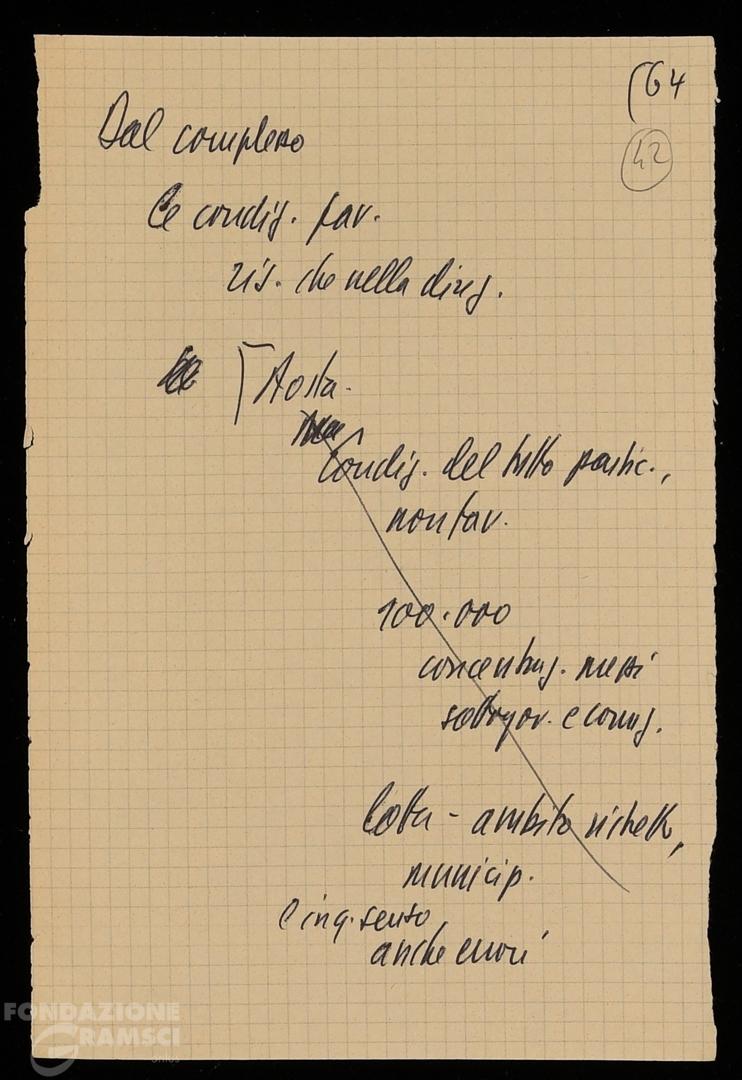 (64
42
Dal complesso
le condiz. fav.
ris. che nella direz.
Aosta.
Condiz. del tutto partic.,
non fav.
100.000
concentraz. mezzi
sottogov. e corruz.
Lotta - ambito ristretto,
municip.
e in q. senso
anche errori
FONDAZIONE
GRAMSCI
onlus